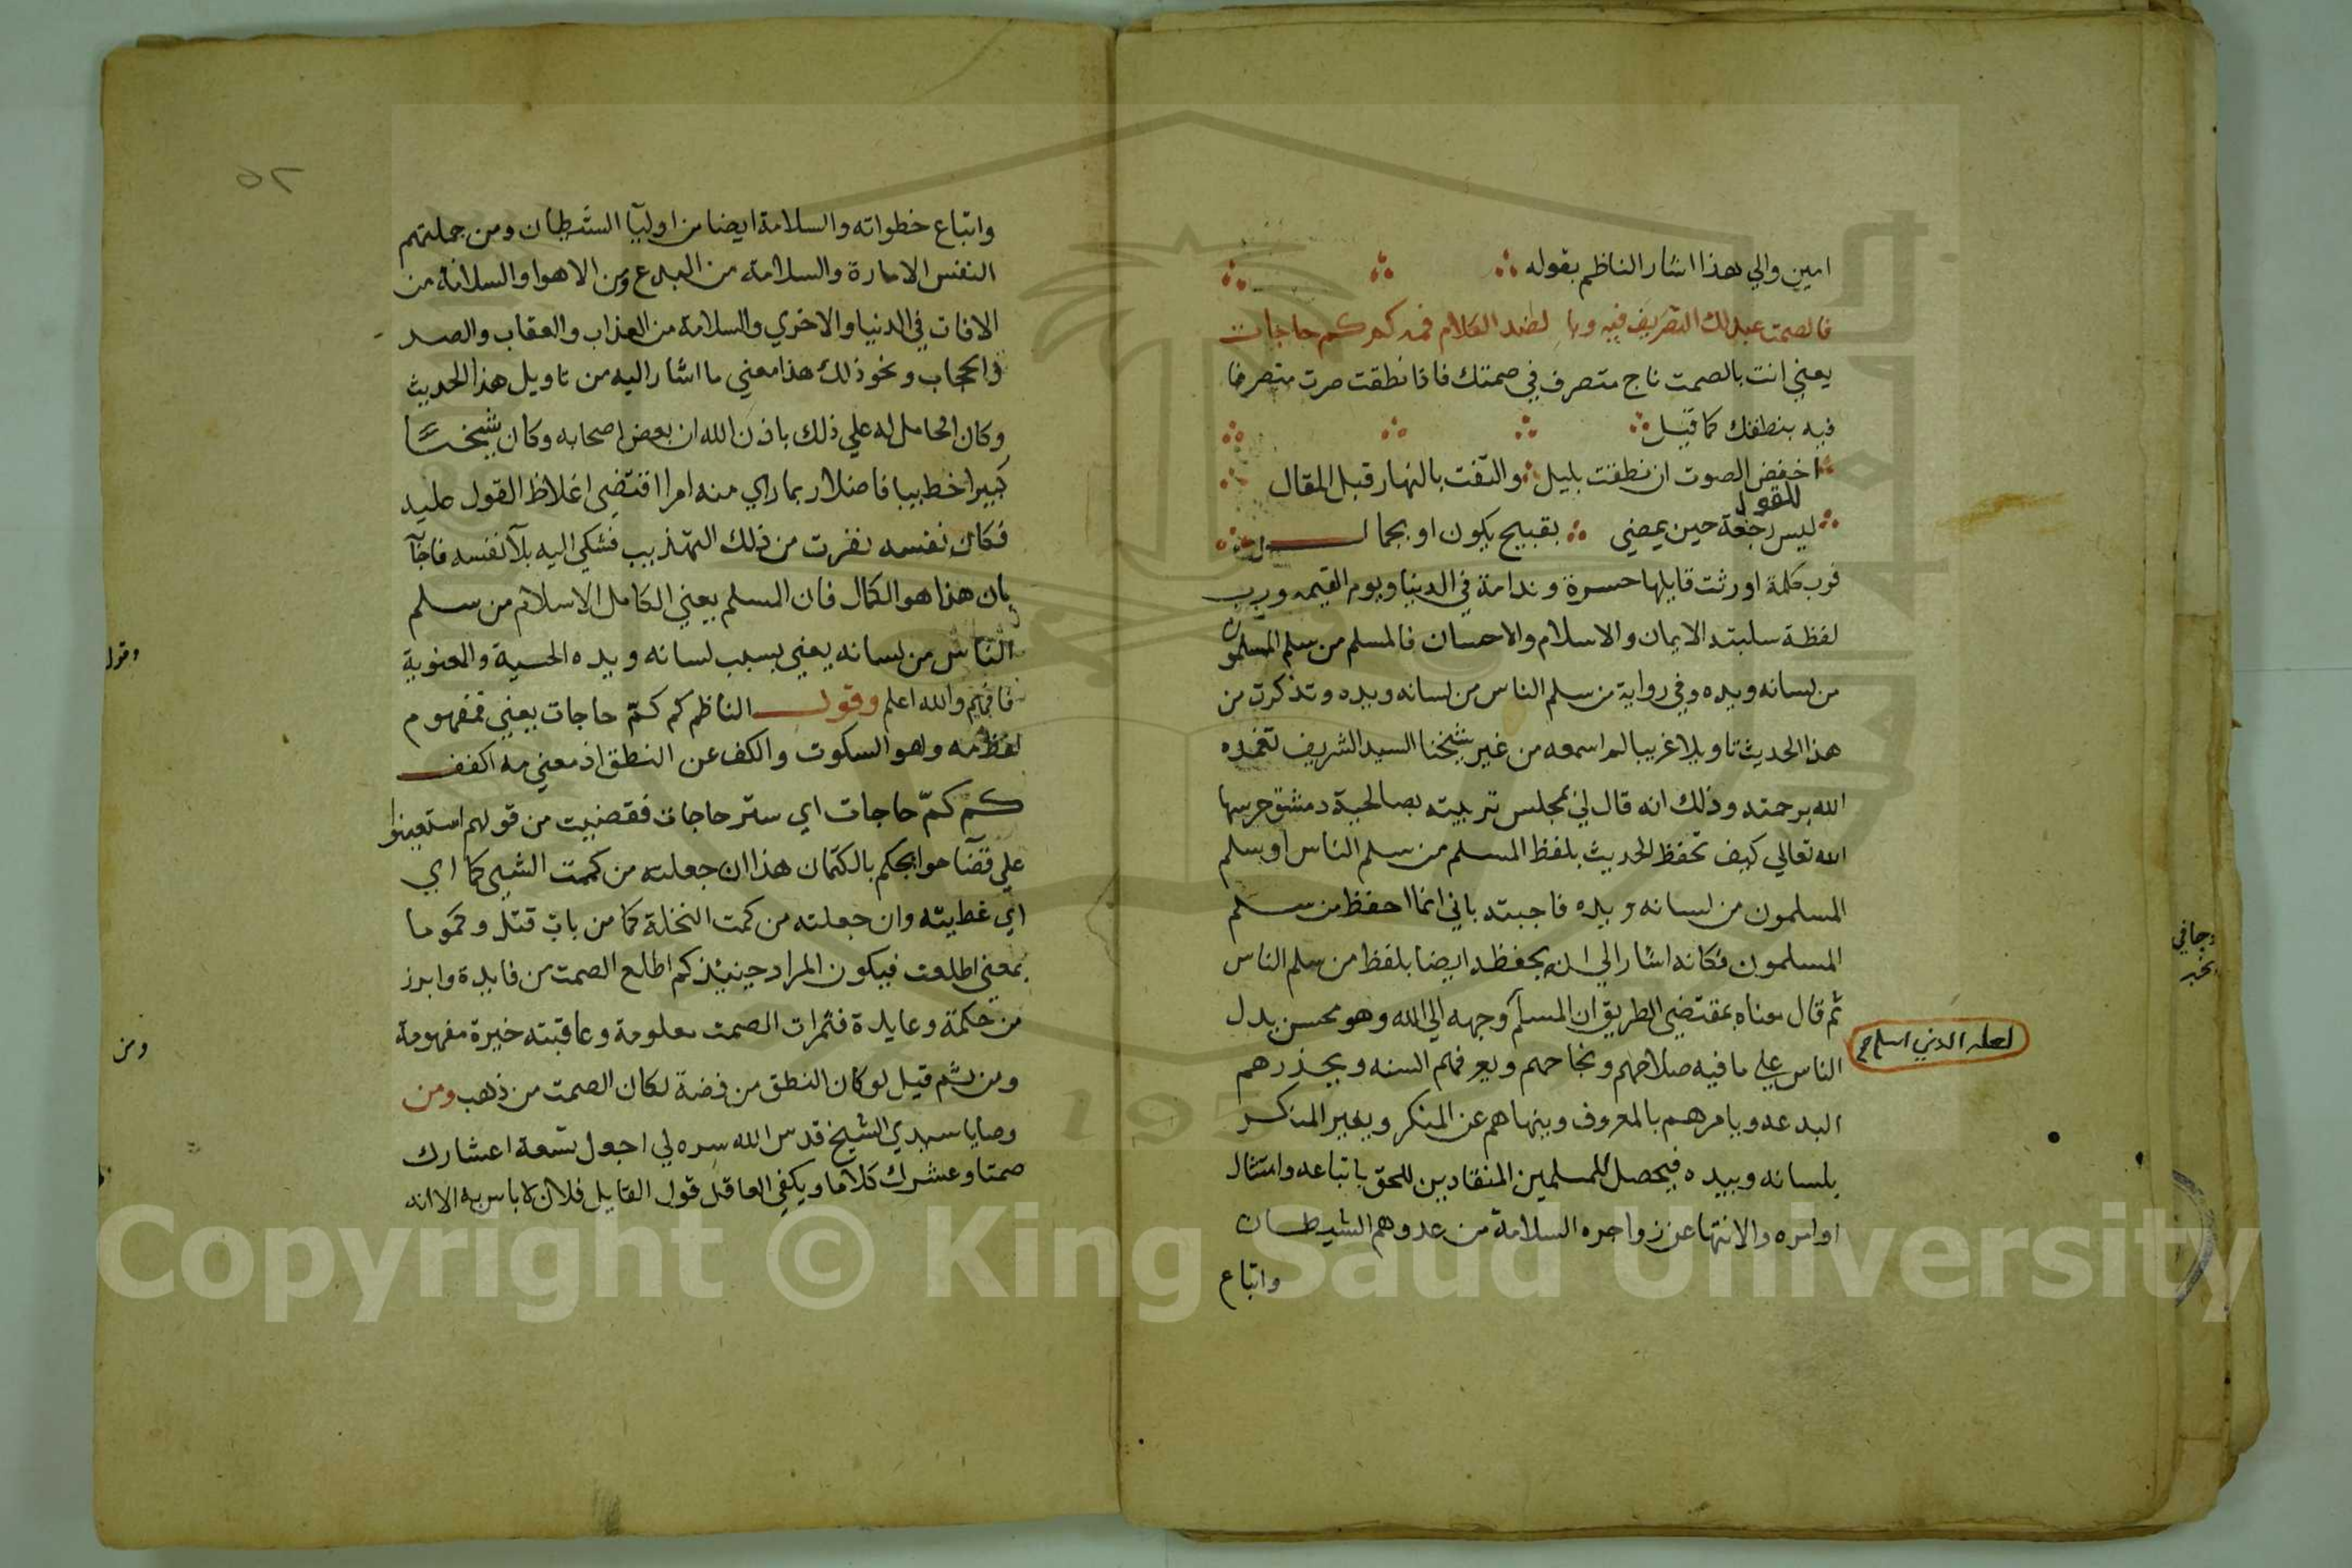 امين والي هذا اشار الناظم بقوله
فالصمت عبد لك التصريف فيه وبا لضد الكلام فمه كم كم حاجات
يعني انت بالصمت ناج متصرف في صمتك فاذا نطقت صرت متصرفا
فيه بنطقك كما قيل
اخفض الصوت ان نطقت بليل والتفت بالنهار قبل المقال
ليس للقول رجعة حين يمضي بقبيح يكون او بجمال
فرب كلمة اورثت قايلها حسرة وندامة في الدنيا ويوم القيمه ورب
لفظة سلبته الايمان والاسلام والاحسان فالمسلم من سلم المسلمون
من لسانه ويده وفي رواية من سلم الناس من لسانه ويده وتذكرت من
هذا الحديث تاويلا غريبا لم اسمعه من غير شيخنا السيد الشريف تغمده
الله برحمته وذلك انه قال لي بمجلس تربيته بصالحية دمشق حرسها
الله تعالي كيف تحفظ الحديث بلفظ المسلم من سلم الناس او بسلم
المسلمون من لسانه ويده فاجبته باني انما احفظ من سلم
المسلمون فكانه اشار الي انه يحفظه ايضا بلفظ من سلم الناس
ثم قال معناه بمقتضي الطريق ان المسلم وجهه الي الله وهو محسن يدل
لعله الذي اسلم صح
الناس علي ما فيه صلاحهم ونجاحهم ويعرفهم السنه ويحذرهم
البدعه ويامرهم بالمعروف وينهاهم عن المنكر ويغير المنكر
بلسانه وبيده فيحصل للمسلمين المنقادين للحق باتباعه وامتثال
اوامره والانتها عن زواجره السلامة من عدوهم الشيطان
واتباع
٥٢
واتباع خطواته والسلامة ايضا من اوليآ الشيطان ومن جملتهم
النفس الامارة والسلامة من البدع ومن الاهوا والسلامة من
الافات في الدنيا والاخري والسلامة من العذاب والعقاب والصد
والحجاب ونحو ذلك هذا معني ما اشار اليه من تاويل هذا الحديث
وكان الحامل له علي ذلك باذن الله ان بعض اصحابه وكان شيخا
كبيرا خطيبا فاضلا ربما راي منه امرا اقتضي اغلاظ القول عليه
فكان نفسه نفرت من ذلك التهذيب فشكي اليه بلآ نفسه فاجآ
بان هذا هو الكمال فان المسلم يعني الكامل الاسلام من سلم
الناس من لسانه يعني بسبب لسانه ويده الحسية والمعنوية
فافهم والله اعلم وقول الناظم كم كمّ حاجات يعني فمفهوم
لفظ مه وهو السكوت والكف عن النطق اذ معني مه اكفف
كم كمّ حاجات اي ستر حاجات فقضيت من قولهم استعينوا
علي قضآ حوايجكم بالكتمان هذا ان جعلته من كممت الشيي كما اي
اي غطيته وان جعلته من كمت النخلة كما من باب قتل وكموما
بمعني اطلعت فيكون المراد حينئذ كم اطلع الصمت من فايدة وابرز
من حكمة وعايدة فثمرات الصمت معلومة وعاقبته خيرة مفهومة
ومن ثم قيل لو كان النطق من فضة لكان الصمت من ذهب ومن
وصايا سيدي الشيخ قدس الله سره لي اجعل تسعة اعشارك
صمتا وعشرك كلاما ويكفي العاقل قول القايل فلان لا باس به الا انه
وقول
ومن
Copyright © King Saud University